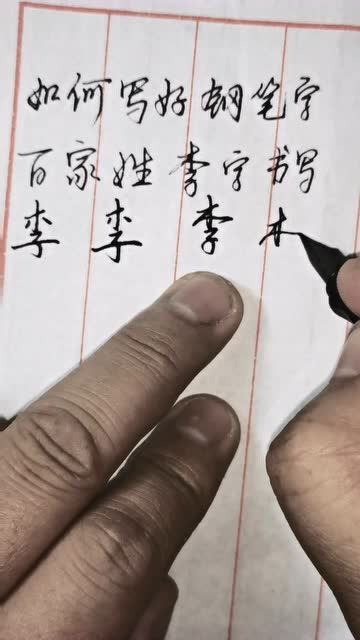 如何写好钢笔字
百家姓李字书写
李李李木